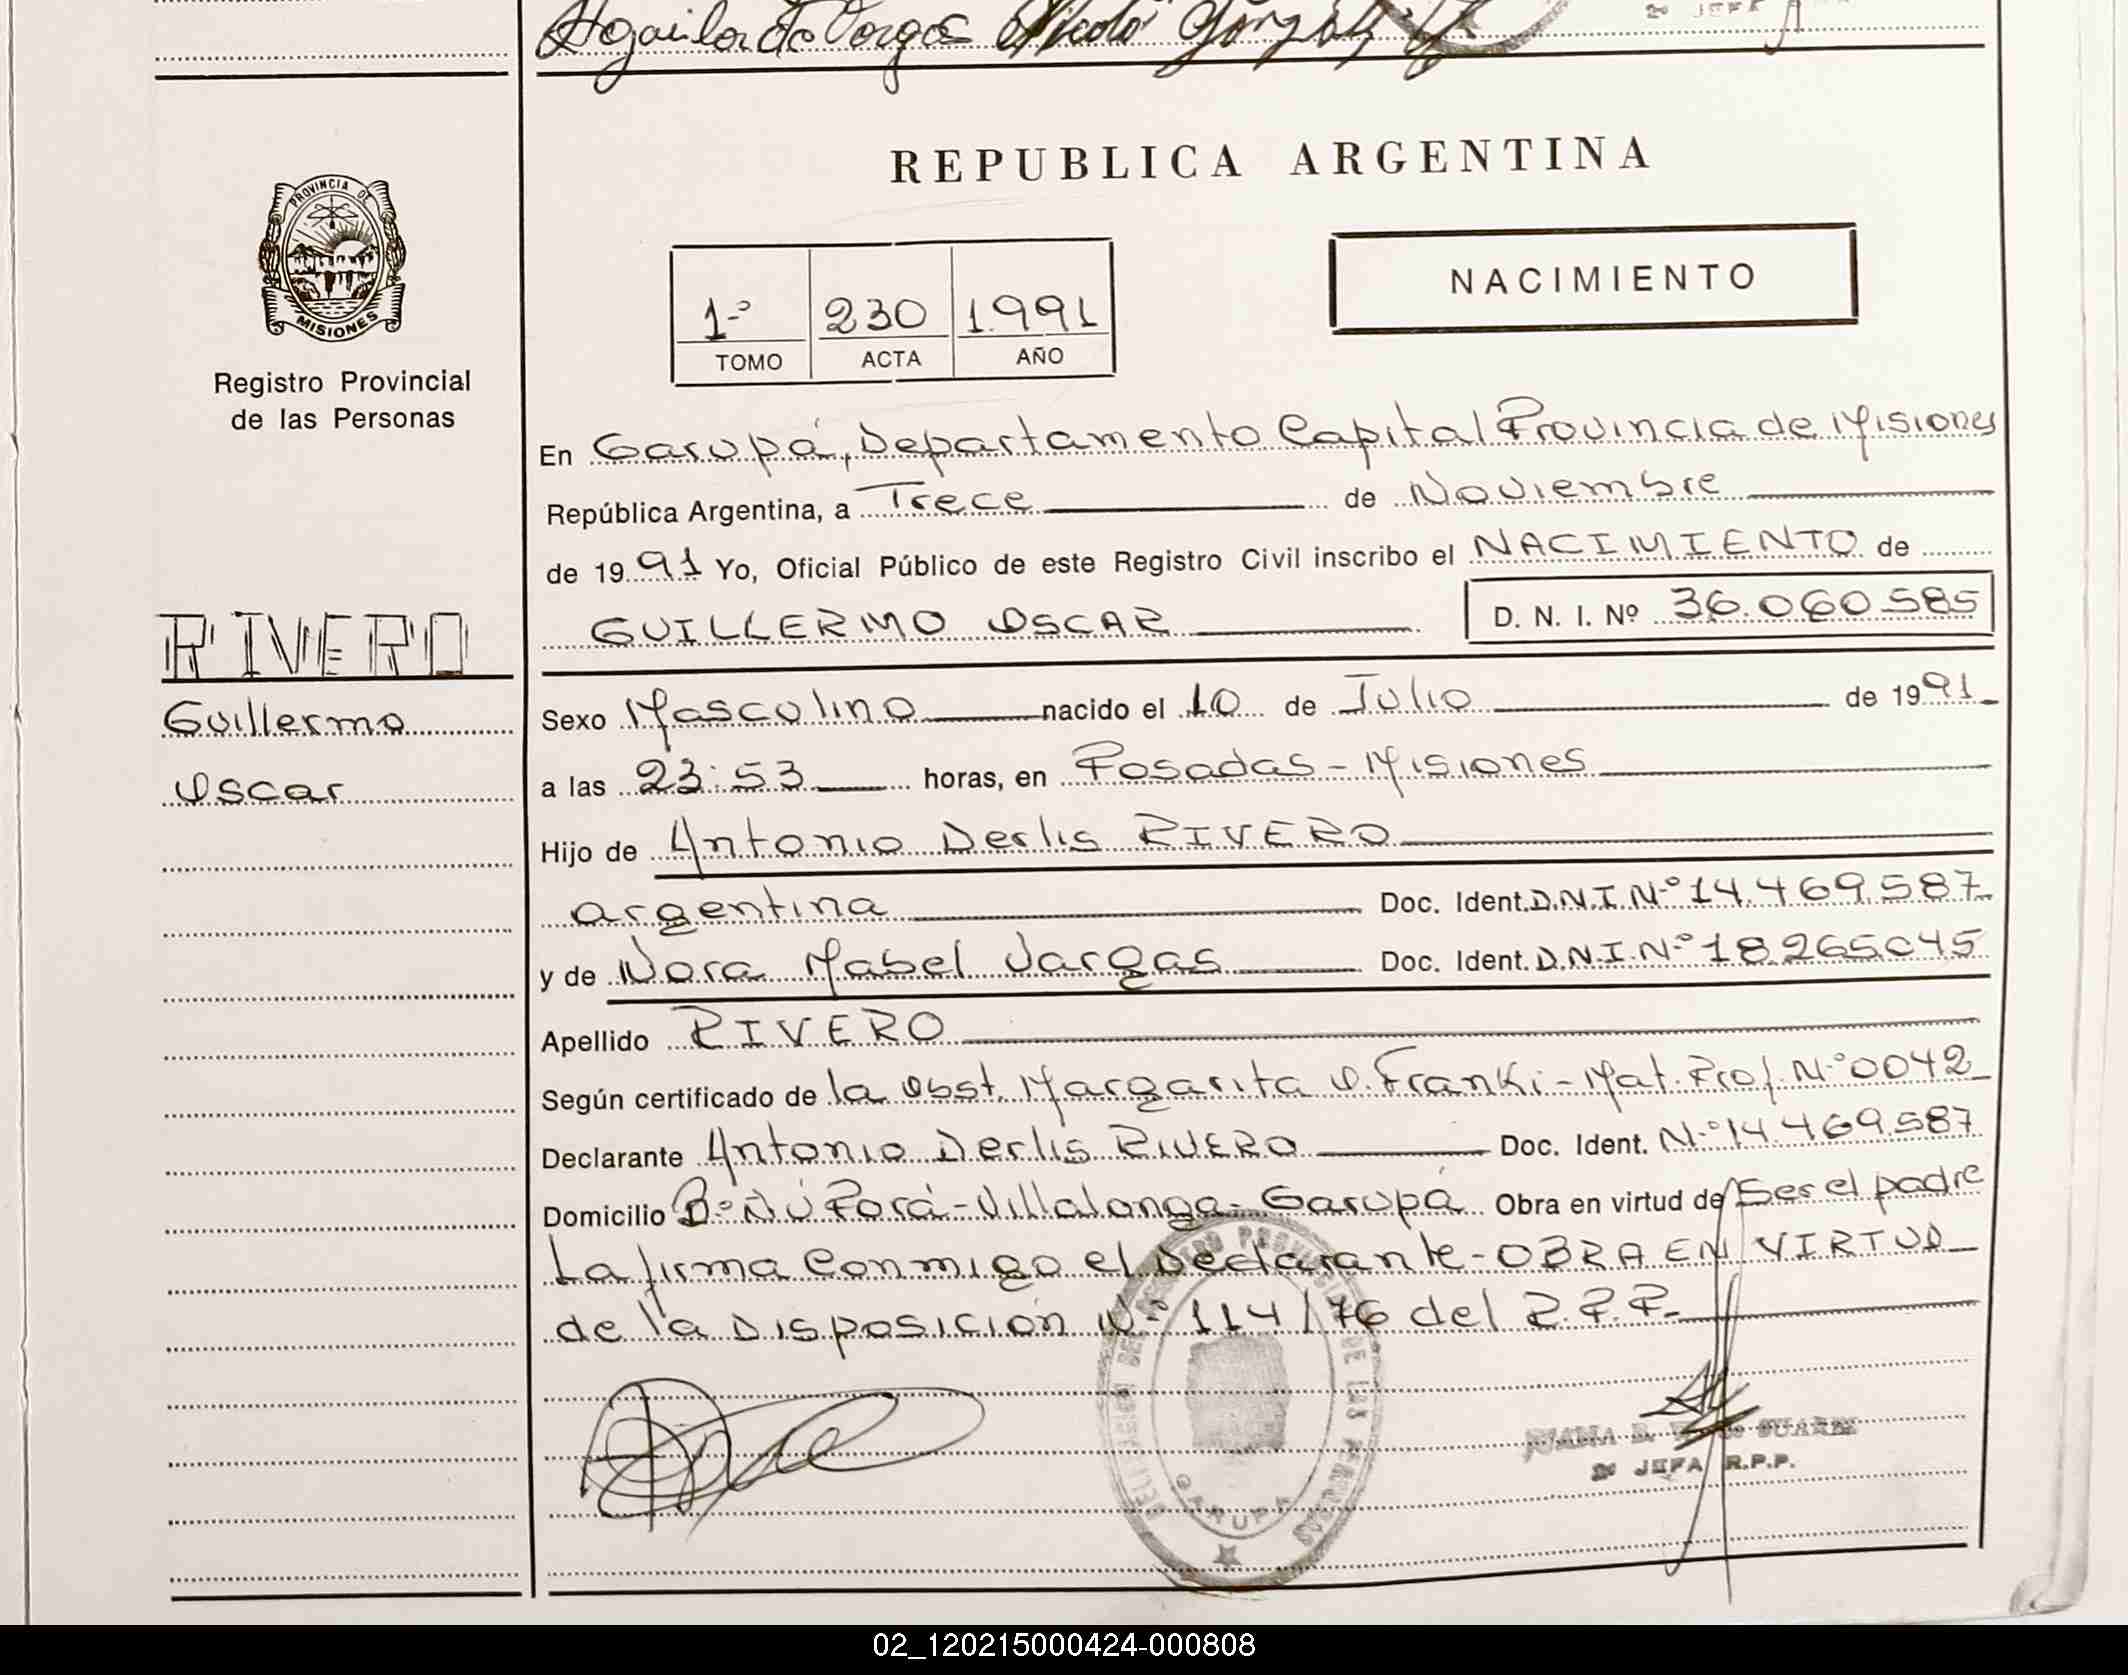 Aguilar de Vargas Nicolá González
2º JEFA
PROVINCIA DE
MISIONES
Registro Provincial
de las Personas
RIVERO
Guillermo
Oscar
REPUBLICA ARGENTINA
NACIMIENTO
1-º 230 1.991
TOMO ACTA AÑO
En Garupá, Departamento Capital Provincia de Misiones
República Argentina, a Trece de Noviembre
de 1991 Yo, Oficial Público de este Registro Civil inscribo el NACIMIENTO de
GUILLERMO OSCAR D. N. I. Nº 36.060.585
Sexo Masculino nacido el 10 de Julio de 1991
a las 23:53 horas, en Posadas - Misiones
Hijo de Antonio Derlis RIVERO
argentina Doc. Ident. D.N.I. Nº 14.469.587
y de Nora Mabel Vargas Doc. Ident. D.N.I. Nº 18.265.045
Apellido RIVERO
Según certificado de la Obst. Margarita O. Franki - Mat. Prof. Nº 0042
Declarante Antonio Derlis RIVERO Doc. Ident. Nº 14.469.587
Domicilio Bº Ñú Porá - Villalonga - Garupá Obra en virtud de Ser el padre
La firma Conmigo el Declarante - OBRA EN VIRTUD
de la Disposición Nº 114/76 del R.P.P.
DELEGACION DEL REGISTRO PROVINCIAL DE LAS PERSONAS
GARUPA
JUANA SUAREZ
2º JEFA R.P.P.
02_120215000424-000808